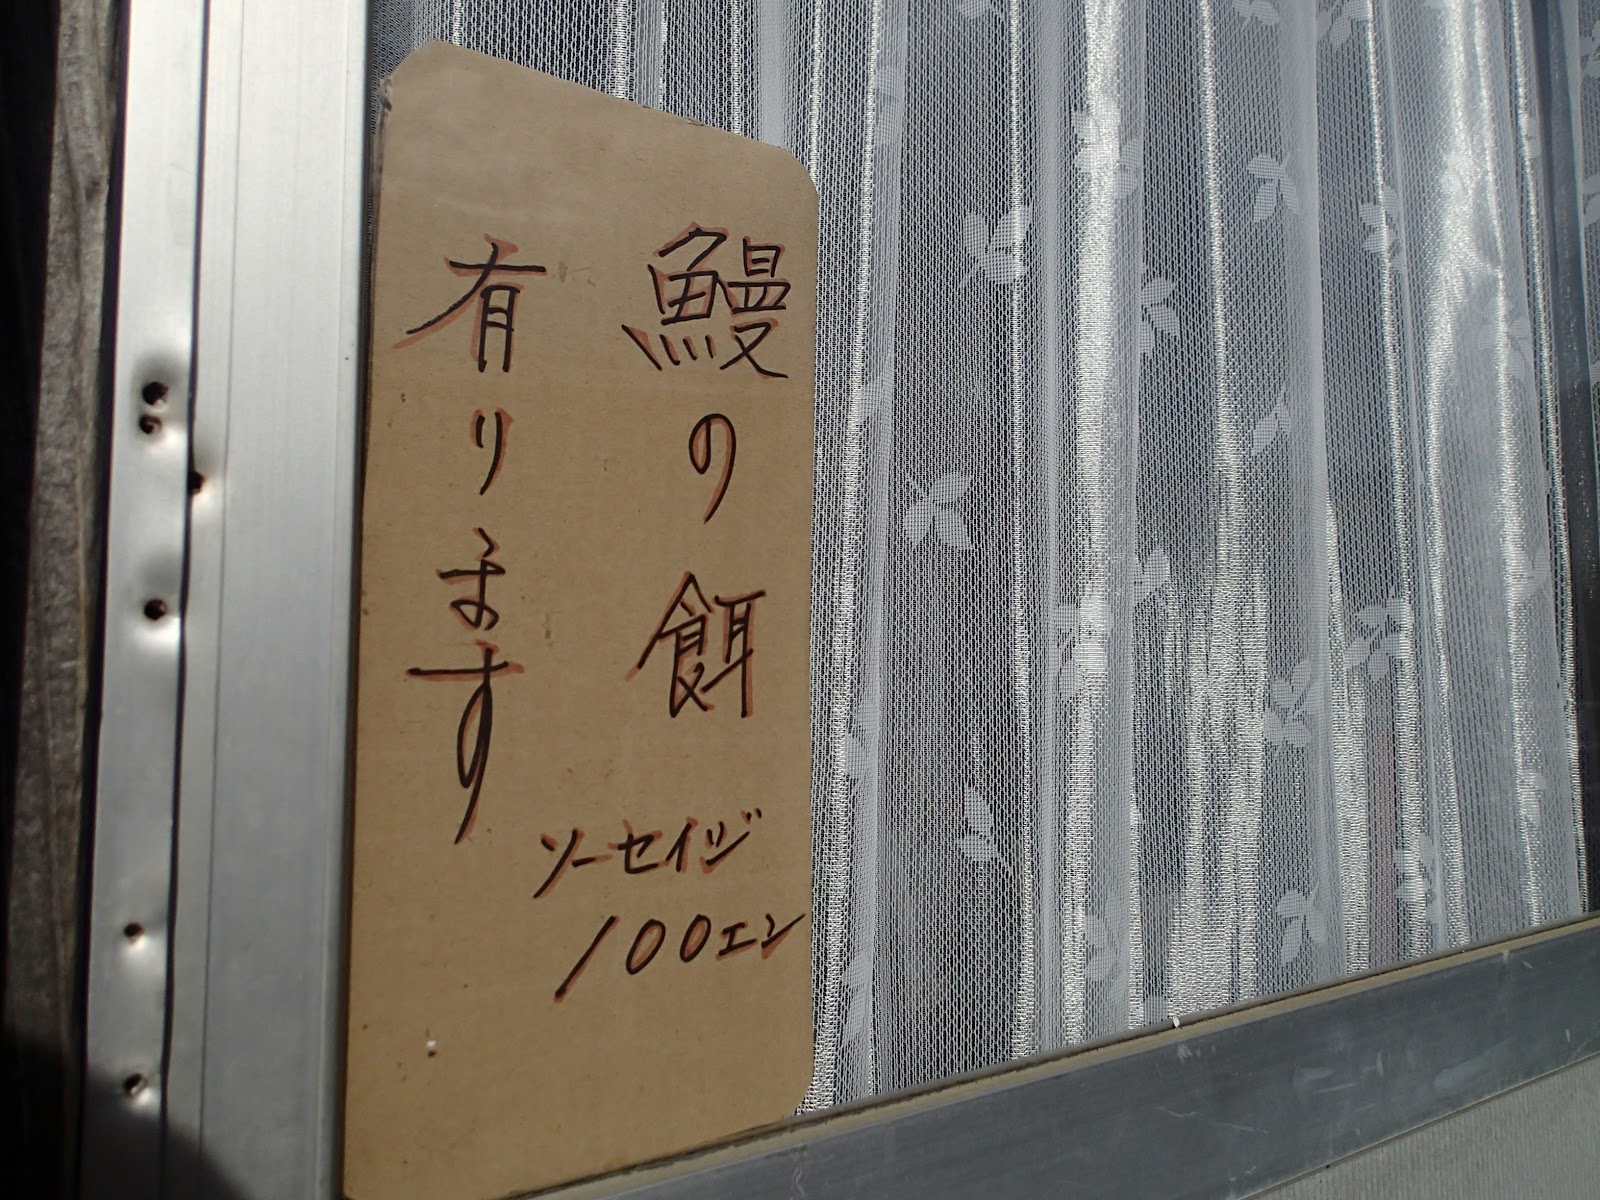 鰻の餌
有ります
ソーセイジ
100エン